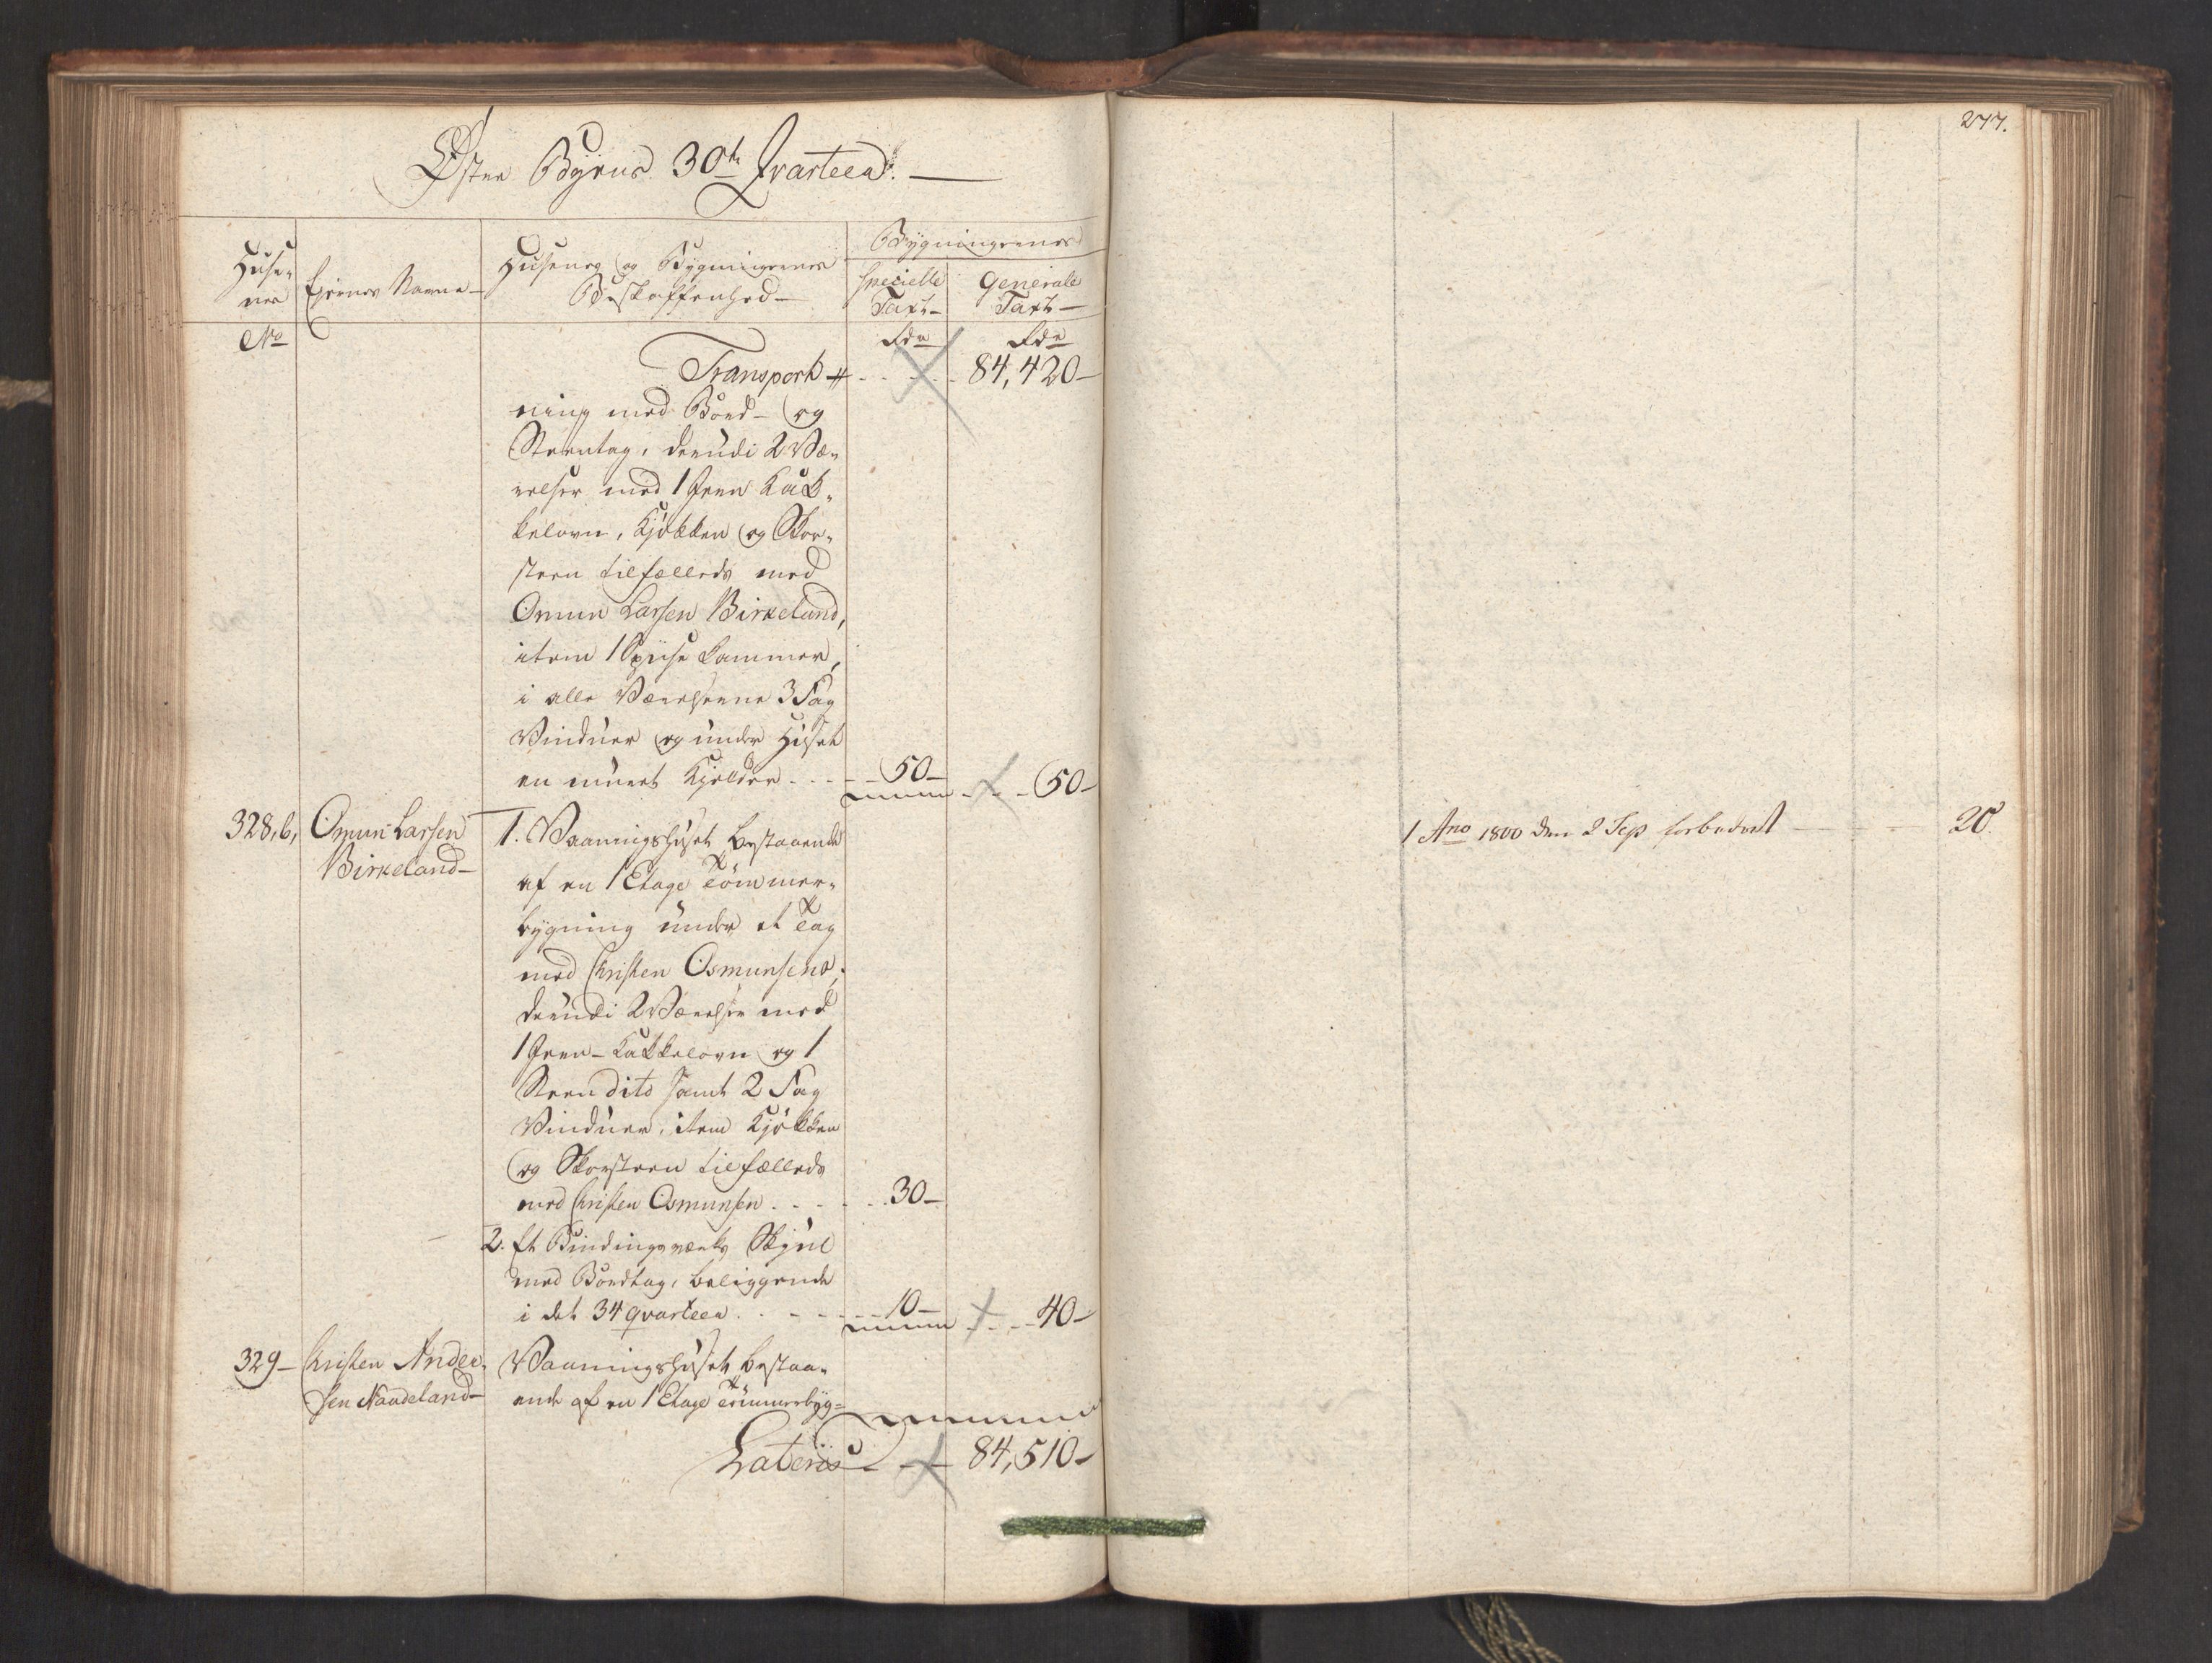 Øster Byens 30te Qvarteer.
Huse-
nes
No
Ejernes Navne
Husenes og Bygningernes
Beskaffenhed
Bygningernes
Specielle
Taxt
Generale
Taxt
Rdr
Rdr
Transport # 84,420
ning med Bord- og
Steentag, derudi 2 Væ-
relser med 1 Jern Kak-
kelovn, Kjøkken og Skor-
steen tilfælleds med
Omun Larsen Birkeland,
item 1 Spiise Kammer,
i alle Værelserne 3 Fag
Vinduer og under Huset
en muret Kjelder 50 50
328, b, Omun Larsen
Birkeland
1. Vaaningshuset bestaaende
af en 1 Etage Tømmer-
bygning under et Tag
med Christen Osmunsens,
derudi 2 Værelser med
1 Jern-Kakkelovn og 1
Steen dito samt 2 Fag
Vinduer, item Kjøkken
og Skorsteen tilfælleds
med Christen Osmunsen 30
2. Et Bindingsværks Skjul
med Bordtag, beliggende
i det 34 qvarteer 10 40
329 Christen Ander-
sen Naadeland
Vaaningshuset bestaa-
ende af en 1 Etage Tømmerbyg-
Laterus 84,510
277.
1 Ano 1800 den 2 Sep forbedret 20.